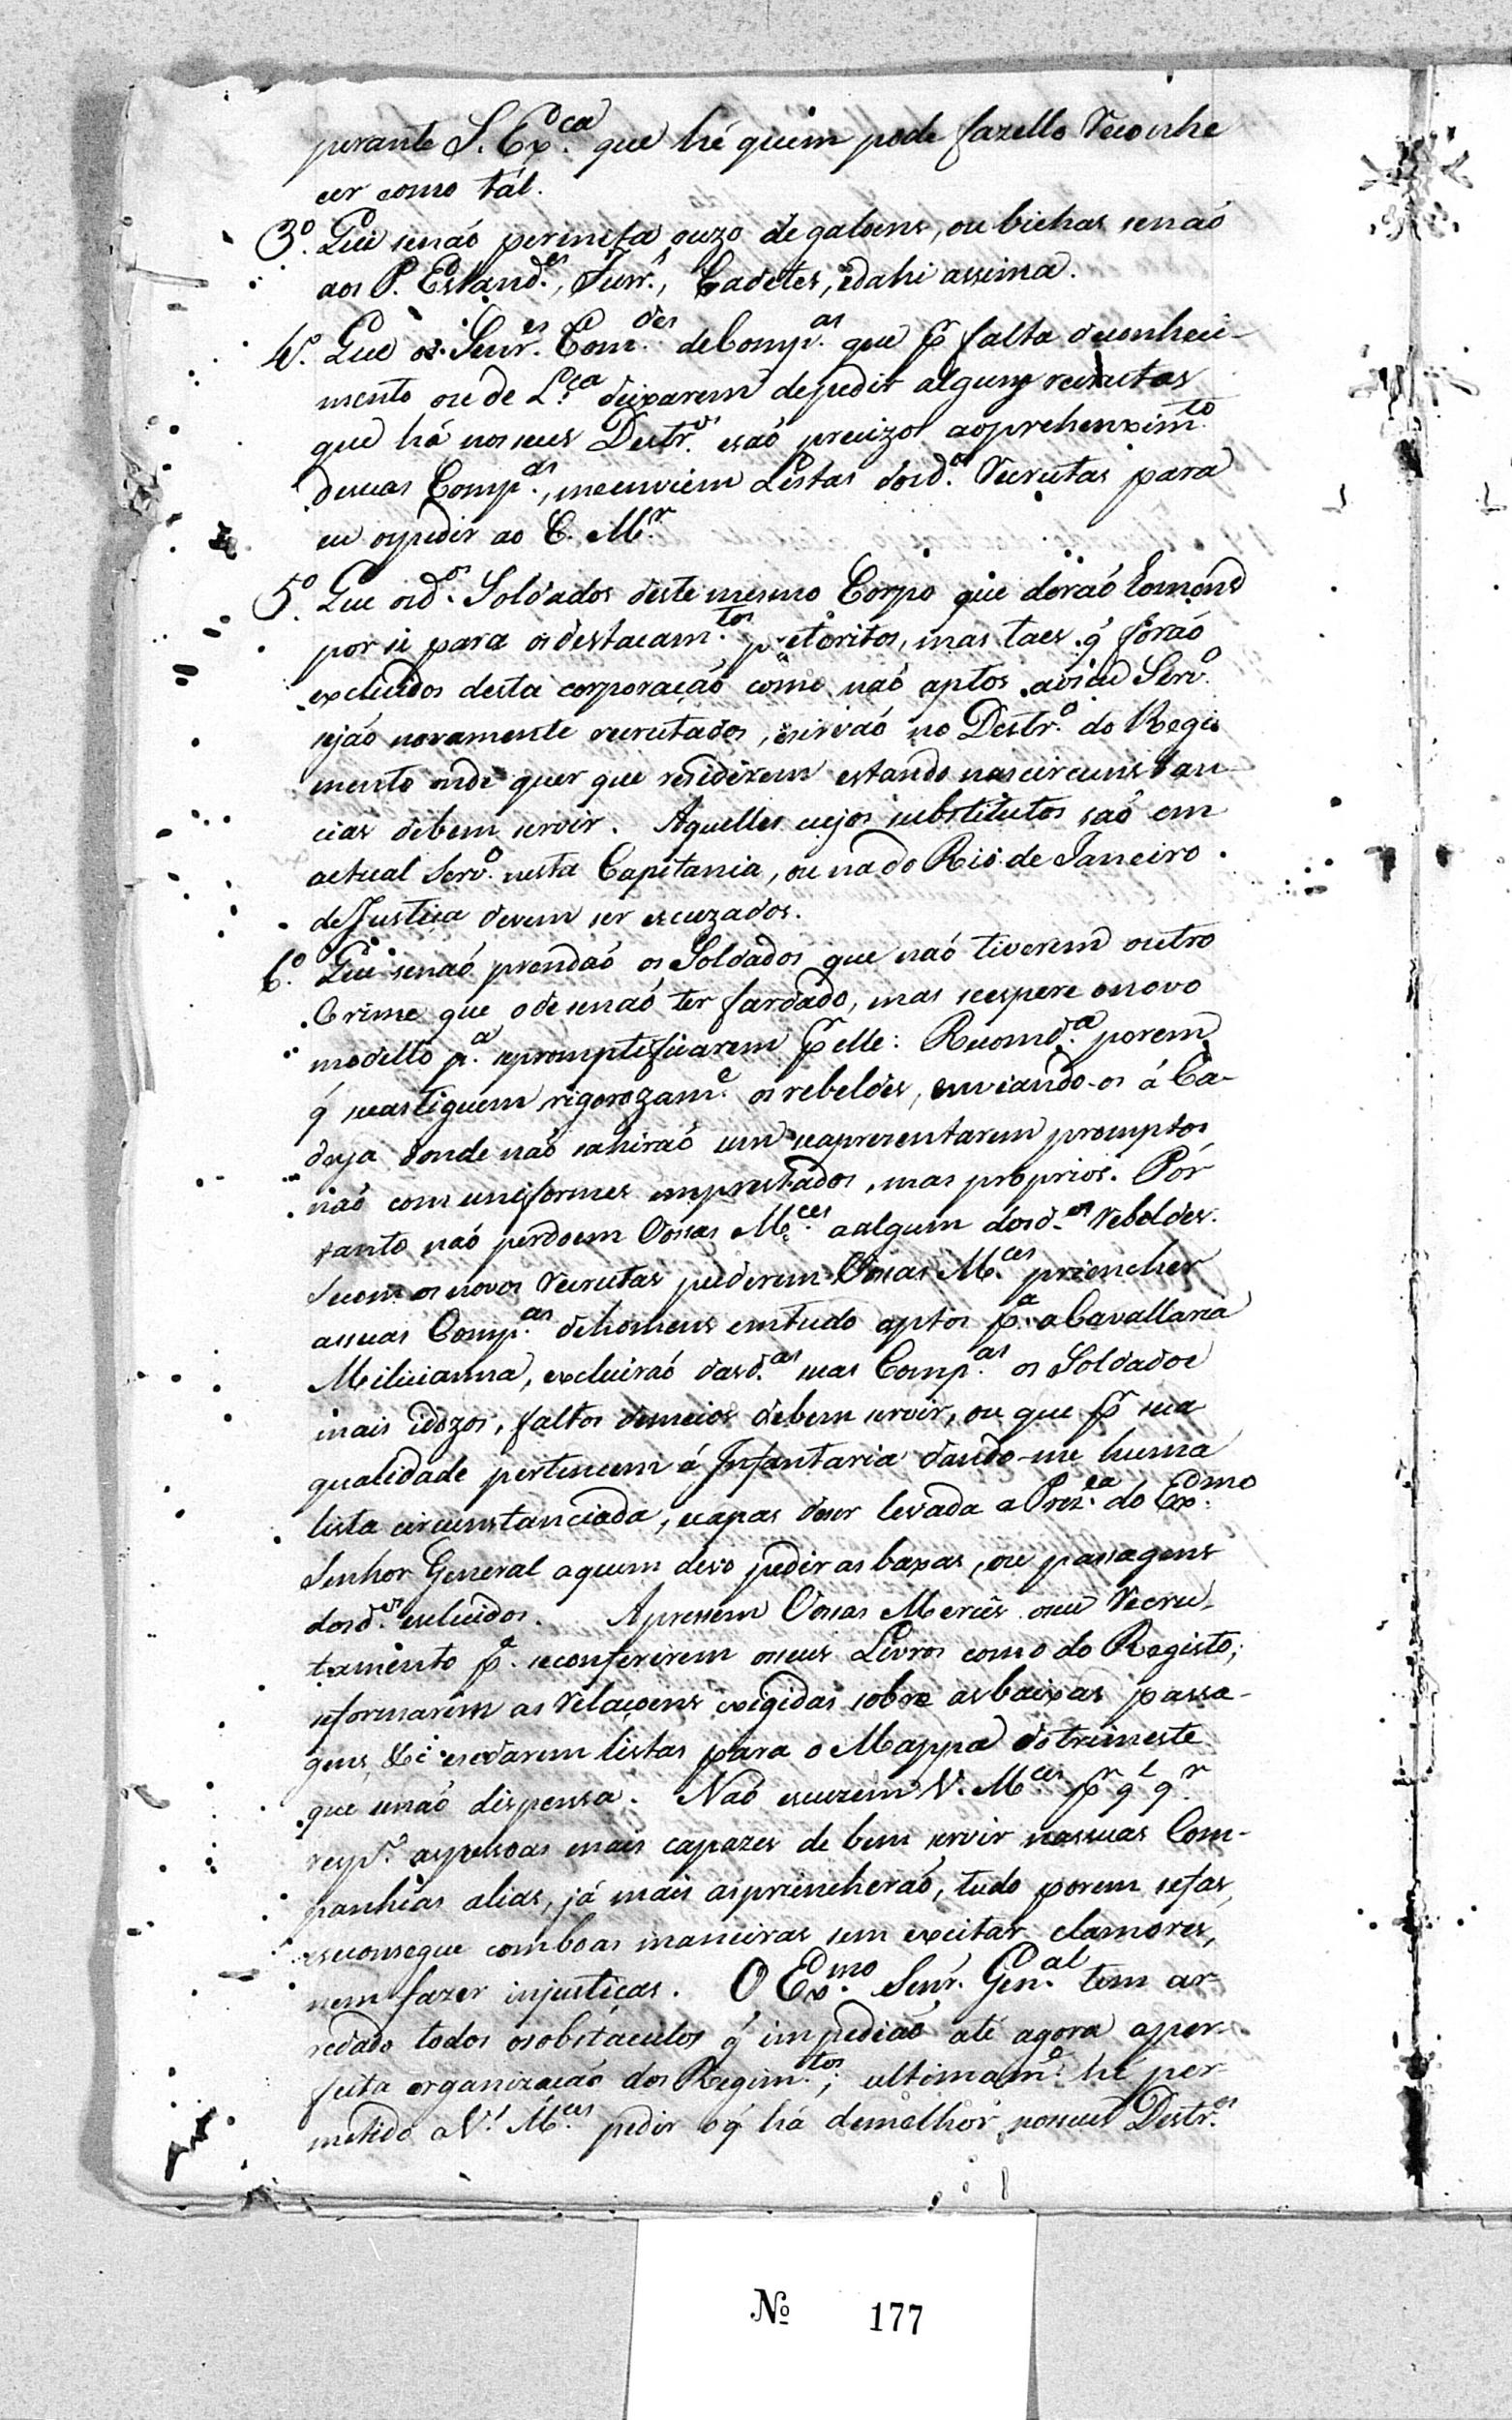 perante S. Ex.ca que hé quem pode fazello Reconhe
cer como tál.
3.º Que senaó permita ouzo degaloens, ou bichas senaó
aos P. Estand.es, Furr.s, Cadetes, edahi assima.
4.º Que os Senr.es Com.des deComp.as que p.r falta deconheci-
mento ou de L.ca deixarem depedir alguns recrutas
que há nosseus Destr.os esaó precizos aoprehenxim.to
desuas Comp.as, meenviem Listas dosd.os Recrutas para
eu ospedir ao C. M.r
5.º Que osd.os Soldados deste mesmo Corpo que doraó homens
por si para osdestacam.tos p.etoritos, mas taes q' foraó
excluidos desta corporaçaó como naó aptos aoseu Serv.º
sejaó novamente recrutados, esirvaó no Destr.º do Regi
mento onde quer que residirem estando nascircunstan-
cias debem servir. Aquelles cujos substitutos saó em
actual Serv.º nesta Capitania, ou nado Rio de Janeiro
deJustiça devem ser escuzados.
6.º Que senaó prendaó os Soldados que naó tiverem outro
Crime que odesenaó ter fardado, mas seespere onovo
modello p.a sepromptificarem p.r elle: Recomd.a porem
q' secastiguem rigorozam.e os rebeldes, enviando-os á Ca-
deya donde naó sahiraó sem seapresentarem promptos
naó com uniformes emprestados, mas proprios. Pór
tanto naó perdoem Vossas M.ces aalgum dosd.os Rebeldes.
Secom os novos Recrutas puderem Vossas M.ces priencher
assuas Comp.as dehomens emtudo aptos p.a aCavallaria
Milicianna, excluiraó dasd.as suas Comp.as os Soldados
mais idozos, faltos demeios debem servir, ou que p.r sua
qualidade pertencem á Infantaria dando-me huma
lista circunstanciada, ecapas deser levada a Prez.ca do Ex.mo
Senhor General aquem devo pedir as baxas, ou passagens
dosd.os excluidos. Apressem Vossas Mercês oseu Recru-
tamento p.a seconferirem osseus Livros como do Registo;
seformarem as Relaçoens exigidas sobre asbaixas passa-
gens, &c esedarem listas para o Mappa dotrimeste
que senaó dispensa. Naó escuzem V. M.ces p.r q.l q.r
resp.º aspessoas mais capazes de bem servir nassuas Com-
panhias alias, já mais aspriencheraó, tudo porem sefas,
eseconsegue comboas maneiras sem excitar clamores,
nem fazer injustiças. O Ex.mo Senr. Gen.al tem ar-
redado todos osobstaculos q' impediaó até agora aper-
feita organizaçaó dos Regim.tos; ultimam.e hé per-
metido aV.s M.ces pedir oq' há demelhor nosseus Destr.os
Nº 177